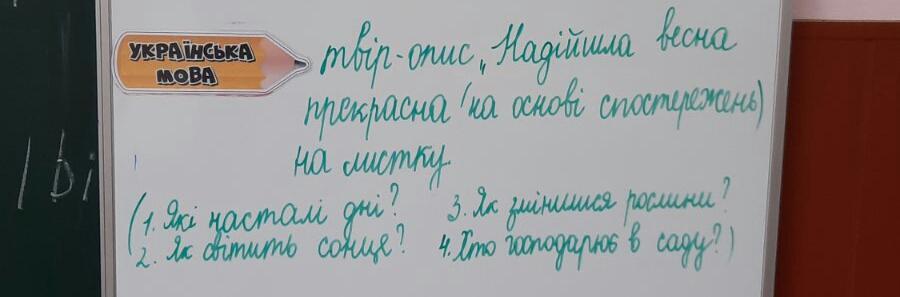 УКРАЇНСЬКА
МОВА
твір-опис „Надійшла весна
прекрасна (на основі спостережень)
на листку.
(1. Які насталі дні?
2. Як світить сонце?
3. Як змінилися рослини?
4. Хто господарює в саду?)